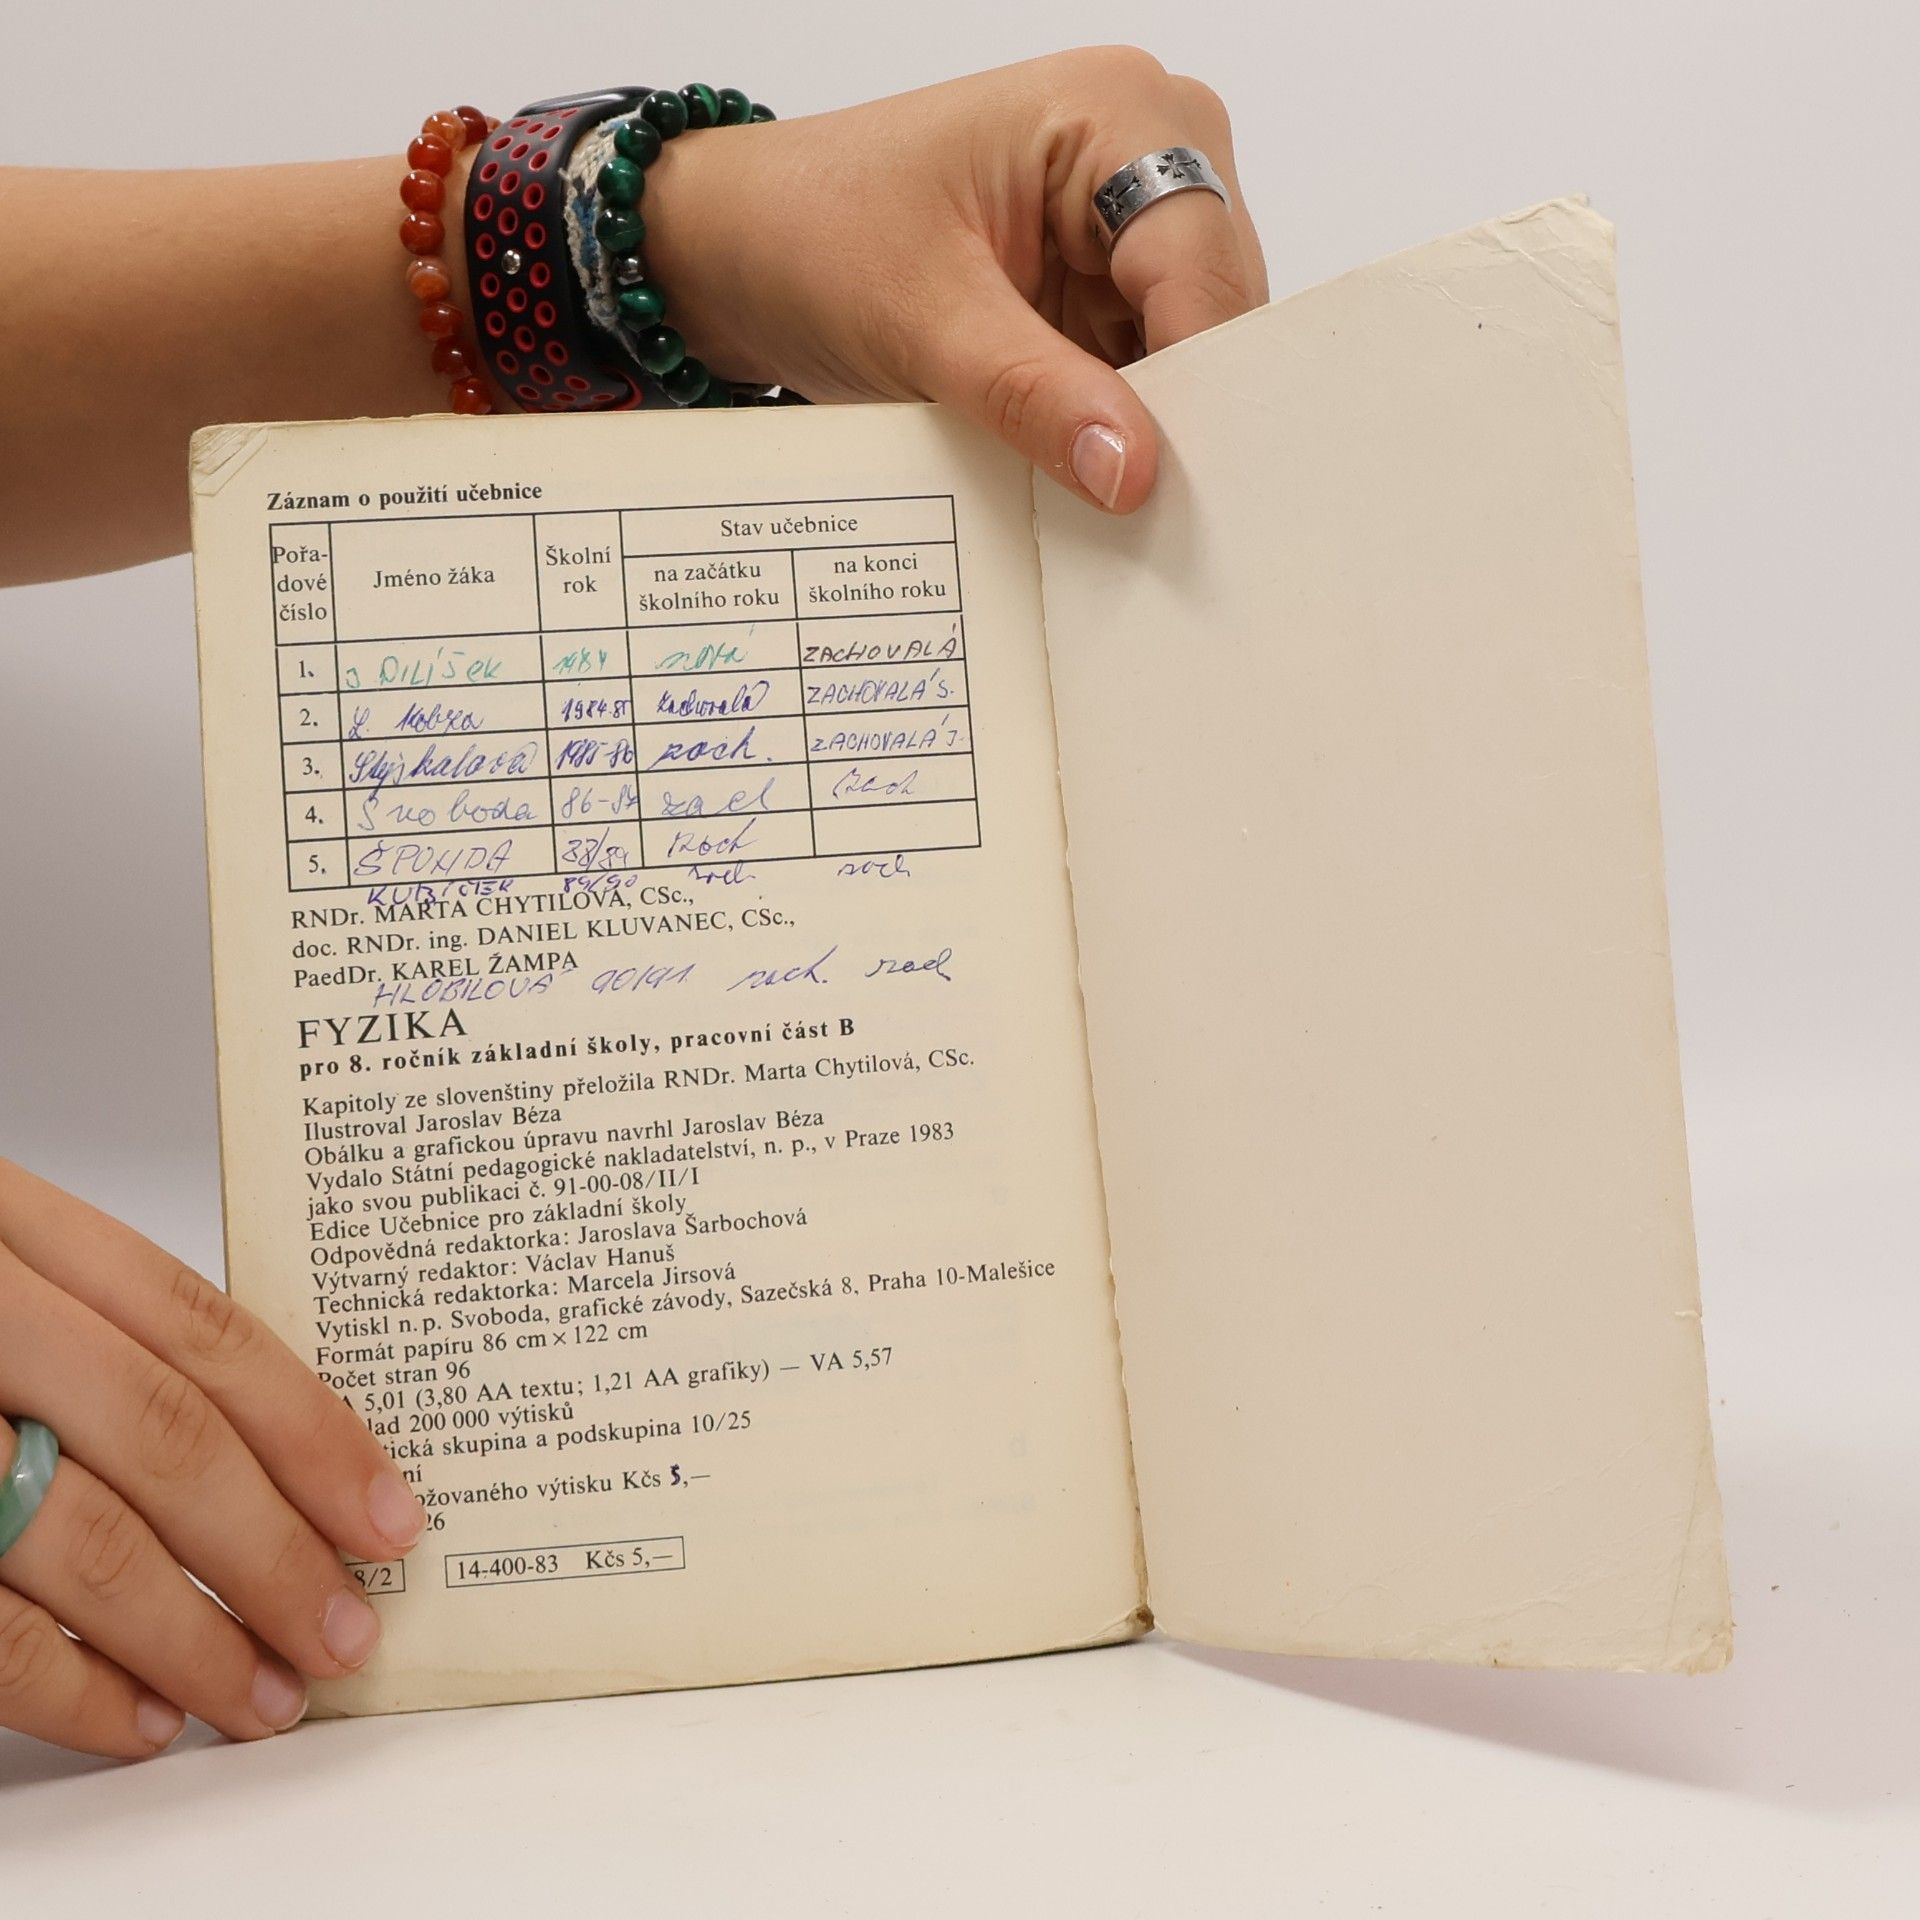 Záznam o použití učebnice
Pořa-
dové
číslo
Jméno žáka
Školní
rok
Stav učebnice
na začátku
školního roku
na konci
školního roku
1. J DILÍŠEK 1984 nová ZACHOVALÁ
2. L. Kobza 1984-85 zachovalá ZACHOVALÁ S.
3. Stýskalová 1985-86 zach. ZACHOVALÁ J.
4. Svoboda 86-87 zach
5. 88/89 zach
KUBÍČEK 89/90 zach zach
RNDr. MARTA CHYTILOVÁ, CSc.,
doc. RNDr. ing. DANIEL KLUVANEC, CSc.,
PaedDr. KAREL ŽAMPA
HLOBILOVÁ 90/91 zach. zach
FYZIKA
pro 8. ročník základní školy, pracovní část B
Kapitoly ze slovenštiny přeložila RNDr. Marta Chytilová, CSc.
Ilustroval Jaroslav Béza
Obálku a grafickou úpravu navrhl Jaroslav Béza
Vydalo Státní pedagogické nakladatelství, n. p., v Praze 1983
jako svou publikaci č. 91-00-08/II/I
Edice Učebnice pro základní školy
Odpovědná redaktorka: Jaroslava Šarbochová
Výtvarný redaktor: Václav Hanuš
Technická redaktorka: Marcela Jirsová
Vytiskl n. p. Svoboda, grafické závody, Sazečská 8, Praha 10-Malešice
Formát papíru 86 cm × 122 cm
Počet stran 96
A 5,01 (3,80 AA textu; 1,21 AA grafiky) — VA 5,57
lad 200 000 výtisků
tická skupina a podskupina 10/25
ní
ožovaného výtisku Kčs 5,—
26
8/2 14-400-83 Kčs 5,—